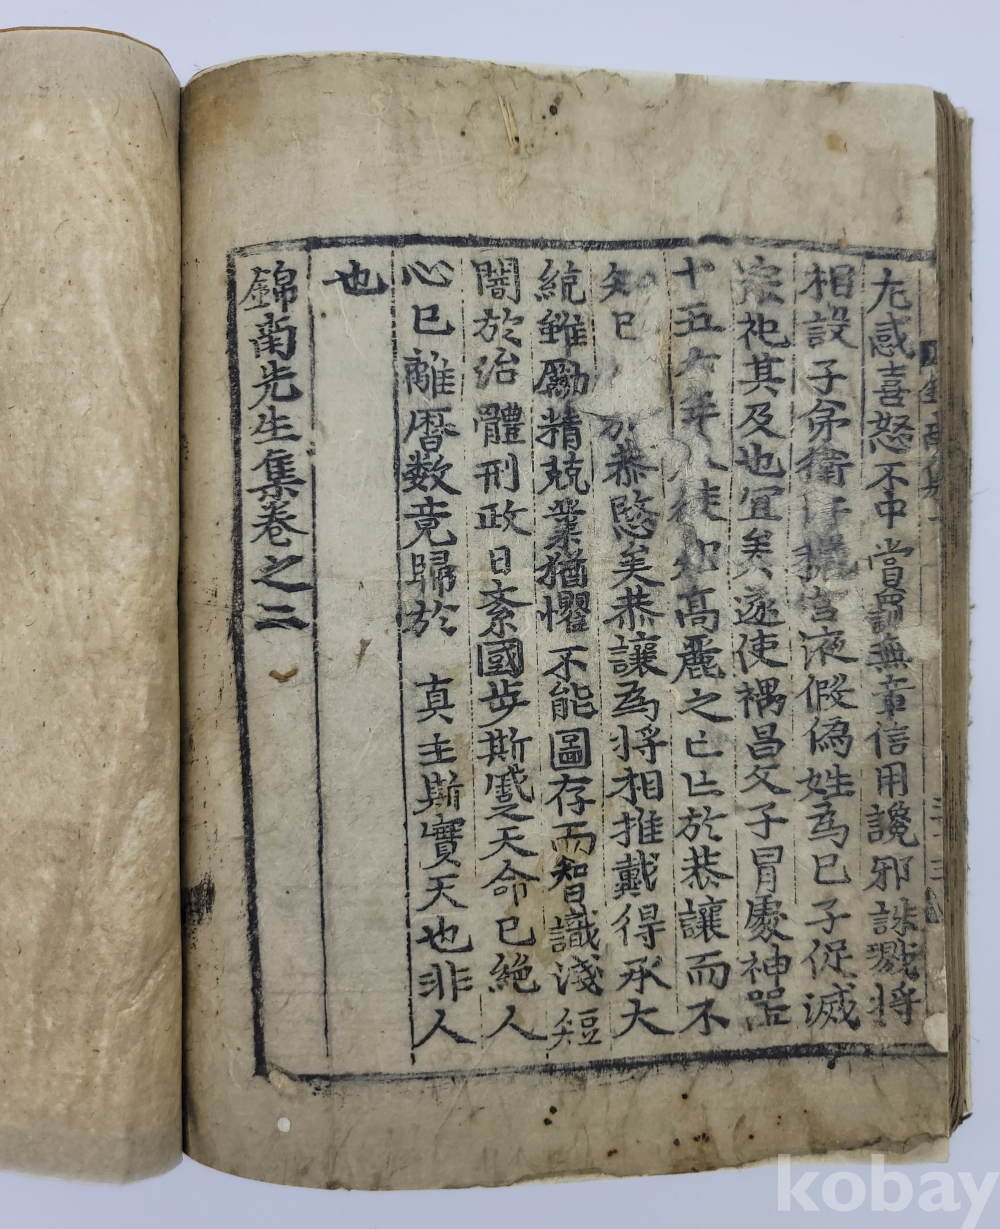 尢感喜怒不中賞罰無章信用讒邪誅戮將
相設子弟衛 宮液假僞姓爲已子促滅
宗祀其及也宜矣遂使禑昌父子冒處神器
十五六年人徒知高麗之亡亡於恭讓而不
知已 於恭愍矣恭讓爲將相推戴得承大
統雖勵精兢業猶懼不能圖存而智識淺短
闇於治體刑政日紊國步斯蹙天命已絶人
心已離曆数竟歸於 真主斯實天也非人
也
錦南先生集卷之二
kobay